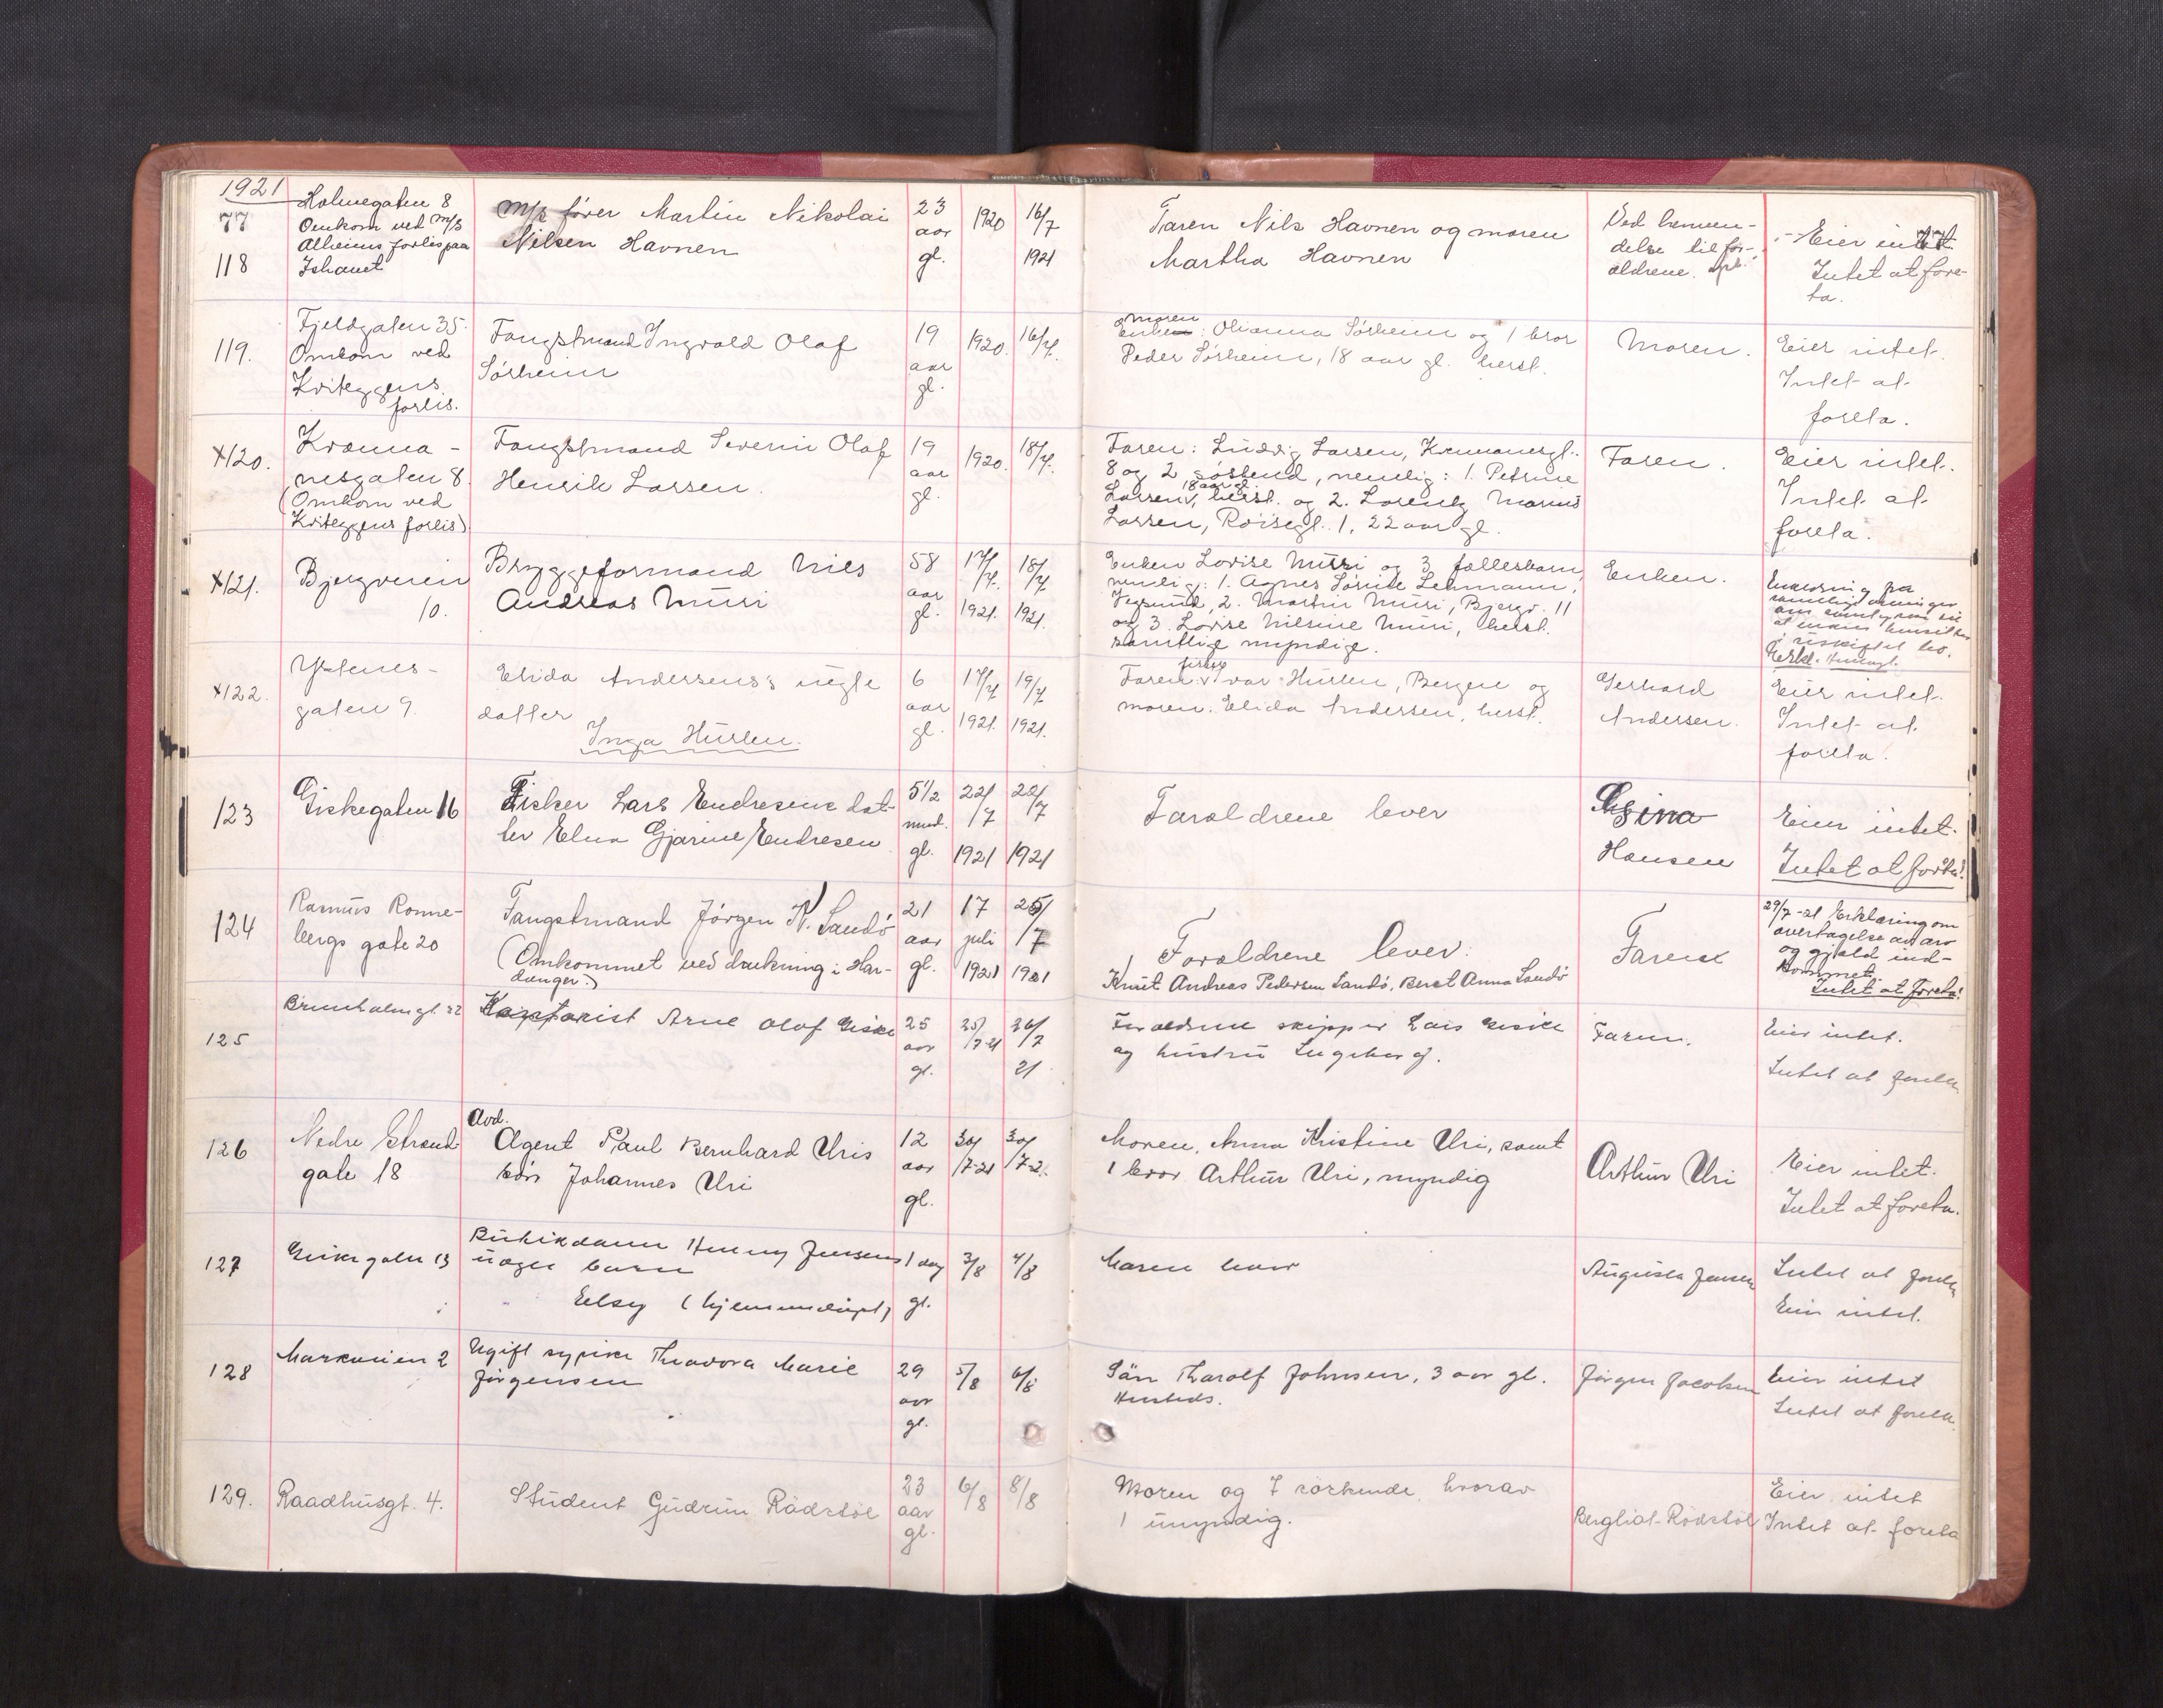 1921
77
118
Holmegaten 8
Omkom ved m/s
Alheims forlis paa
Ishavet
M/k fører Martin Nikolai
Nilsen Havnen
23
aar
gl.
1920
16/7
1921
Faren Nils Havnen og moren
Martha Havnen
Ved henven-
delse til for-
ældrene.
Eier intet.
77
Intet at fore-
ta.
119.
Fjeldgaten 35.
Omkom ved
Kviteggens
forlis.
Fangstmand Ingvald Olaf
Sørheim
19
aar
gl.
1920.
16/7.
moren
Enken: Olianna Sørheim og 1 bror
Peder Sørheim, 18 aar gl. herst.
Moren.
Eier intet.
Intet at
foreta.
x120.
Kvænna-
nesgaten 8.
(Omkom ved
Kviteggens forlis)
Fangstmand Severin Olaf
Henrik Larsen.
19
aar
gl.
1920.
18/7.
Faren: Ludvig Larsen, Kvennanesgt.
8 og 2 søskend, nemlig: 1. Petrine
18 aar gl
Larsen, herst. og 2. Lorentz Marius
Larsen, Røisegt. 1, 22 aar gl.
Faren.
Eier intet.
Intet at
foreta.
x121.
Bjergveien
10.
Bryggeformand Nils
Andreas Muri
58
aar
gl.
17/7.
1921.
18/7
1921.
Enken Lovise Muri og 3 fællesbarn,
nemlig: 1. Agnes Sørine Lehmann,
Vegsund, 2. Martin Muri, Bjergv. 11
og 3. Lovise Nilsine Muri, herst.
samtlige myndige.
Enken.
Erklæring fra
samtlige arvinger
om samtykke til
at enken hensitter
i uskiftet bo.
x122.
Ystenes-
gaten 9.
Elida Andersens's uegte
datter
Inga Hurlen.
6
aar
gl.
17/7
1921.
19/7
1921.
Faren: var Hurlen, Bergen og
moren: Elida Andersen, herst.
Gerhard
Andersen.
Eier intet.
Intet at
foreta.
123
Giskegaten 16
Fisker Lars Endresens dat-
ter Elna Gjarine Endresen
5 1/2
mnd.
gl.
22/7
1921
22/7
1921
Forældrene lever
Gina
Hansen
Eier intet.
Intet at foreta!
124
Rasmus Rønne-
bergs gate 20
Fangstmand Jørgen K. Sandø
(Omkommet ved drukning i Har-
danger.)
21
aar
gl.
17
juli
1921
25/7
1921
Forældrene lever.
Knut Andreas Pedersen Sandø, Beret Anna Sandø
Faren
29/7-21 Erklæring om
overtagelse av arv
og gjæld ind-
kommet.
Intet at foreta!
125
Brunholmgt. 22
Kontorist Arne Olaf Giske
25
aar
gl.
25/7-21
26/7
21
Forældrene skipper Lars Giske
og hustru Ingeborg.
Faren.
Eier intet.
Intet at foreta
126
Nedre Strand-
gate 18
Avd.
Agent Paul Bernhard Uris
søn Johannes Uri
12
aar
gl.
30/7-21
30/7-21
Moren, Anna Kristine Uri, samt
1 bror Arthur Uri, myndig
Arthur Uri
Eier intet.
Intet at foreta.
127
Giskegaten 13
Butikdame Henny Jensens
uegte barn
Elsy (hjemmedøpt)
1 dag
gl.
3/8
4/8
Moren lever
Augusta Jensen
Intet at foreta
Eier intet.
128
Markveien 2
Ugift sypike Theodora Marie
Jørgensen
29
aar
gl.
5/8
6/8
Søn Tharolf Johnsen, 3 aar gl.
Hersteds.
Jørgen Jacobsen
Eier intet
Intet at foreta
129.
Raadhusgt. 4.
Student Gudrun Rødstøl
23
aar
gl.
6/8
8/8
Moren og 7 søskende, hvorav
1 umyndig.
Bergliot Rødstøl
Eier intet
Intet at foreta